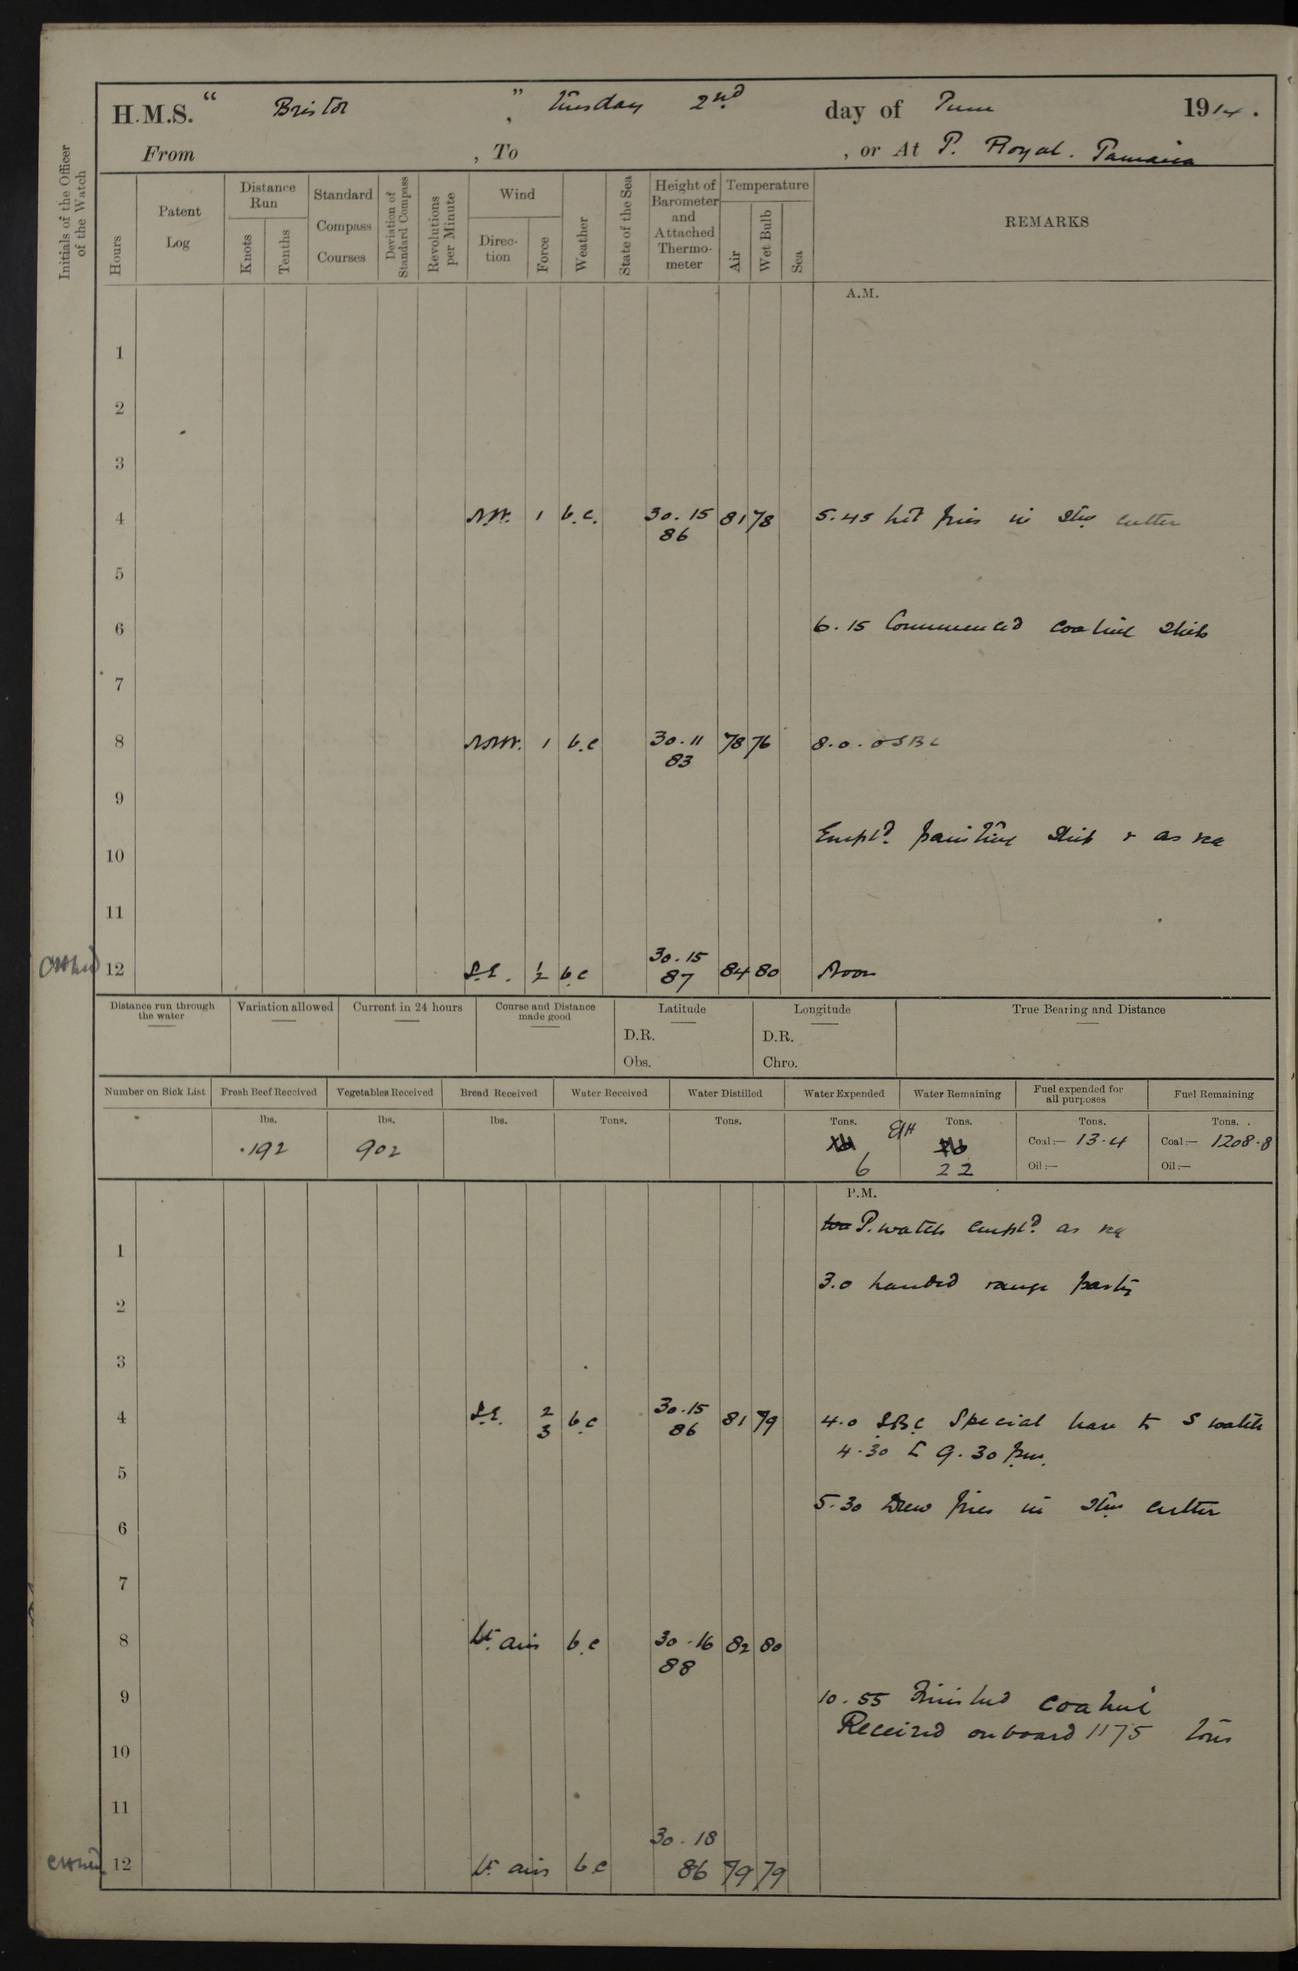 H.M.S. “ Bristol ” , Tuesday 2nd day of June 1914.
From , To , or At P. Royal. Jamaica
Initials of the Officer of the Watch
Hours
Patent Log
Distance Run
Knots
Tenths
Standard Compass Courses
Deviation of Standard Compass
Revolutions per Minute
Wind
Direc-tion
Force
Weather
State of the Sea
Height of Barometer and Attached Thermo-meter
Temperature
Air
Wet Bulb
Sea
REMARKS
A.M.
1
2
3
4 N.W. 1 b.c. 30.15 81 78 5.45 Lit fires in Stm cutter
86
5
6 6.15 Commenced coaling Ship
7
8 NNW. 1 b.c 30.11 78 76 8.0.
83
9
Empld. painting Ship & as req
10
11
30.15
12 S.E. ½ b.c 87 84 80 Noon
Distance run through the water
Variation allowed
Current in 24 hours
Course and Distance made good
Latitude
D.R.
Obs.
Longitude
D.R.
Chro.
True Bearing and Distance
Number on Sick List
Fresh Beef Received
Vegetables Received
Bread Received
Water Received
Water Distilled
Water Expended
Water Remaining
Fuel expended for all purposes
Fuel Remaining
lbs. lbs. lbs. Tons. Tons. Tons. Tons. Tons. Tons.
192 902 Coal:— 13.4 Coal:— 1208.8
6 22 Oil:— Oil:—
P.M.
P. watch empld. as req
1
3.0 Landed range party
2
3
4 S.E. 2 b.c 30.15 81 79 4.0 S.B.C Special leave to S watch
3 86
4.30 to 9.30 pm.
5
5.30 Drew fires in Stm cutter
6
7
8 Lt. airs b.c 30.16 82 80
88
9 10.55 Finished coaling
Received onboard 1175 tons
10
11
30.18
12 Lt airs b c 86 79 79